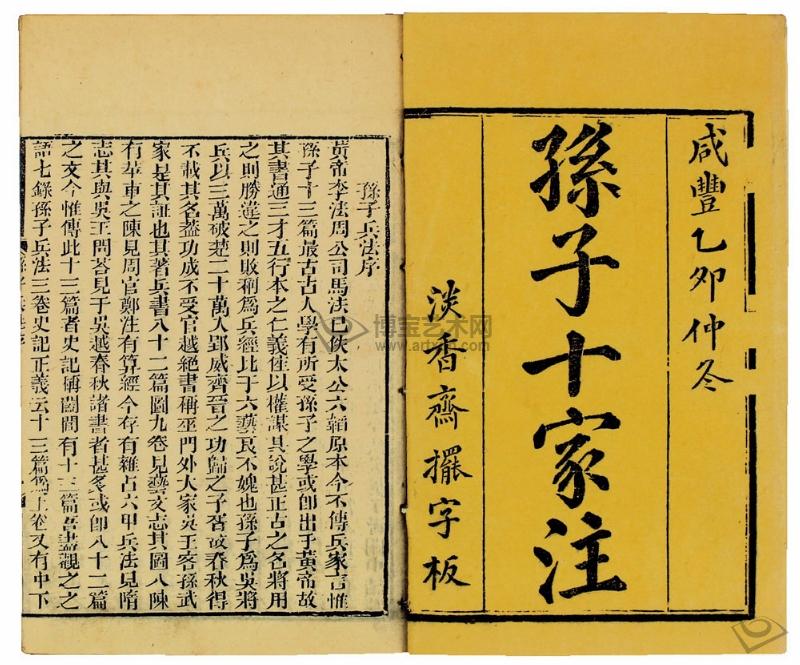 咸豐乙卯仲冬
孫子十家注
淡香齋擺字板
孫子兵法序
黃帝李法周公司馬法已佚太公六韜原本今不傳兵家言惟
孫子十三篇最古古人學有所受孫子之學或即出于黃帝故
其書通三才五行本之仁義佐以權謀其說甚正古之名將用
之則勝違之則敗稱爲兵經比于六藝良不媿也孫子爲吳將
兵以三萬破楚二十萬入郢威齊晉之功歸之子胥故春秋傳
不載其名蓋功成不受官越絕書稱巫門外大冢吳王客孫武
冢是其證也其著兵書八十二篇圖九卷見藝文志其圖八陳
有苹車之陳見周官鄭注有算經今存有雜占六甲兵法見隋
志其與吳王問荅見于吳越春秋諸書者甚多或即八十二篇
之文今惟傳此十三篇者史記稱闔閭有十三篇吾盡觀之之
語七錄孫子兵法三卷史記正義云十三篇爲上卷又有中下
博宝艺术网